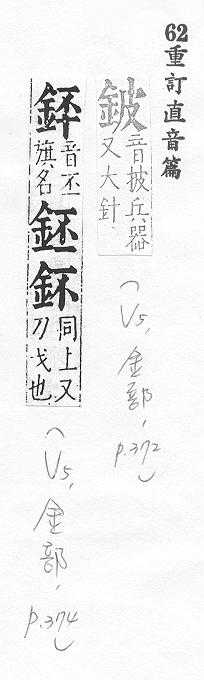 62重訂直音篇
鈹
音披兵器
又大針
(V5, 金部, p.372)
音丕
旗名
鉟鈈
同上又
刀戈也
(V5, 金部, p.374)